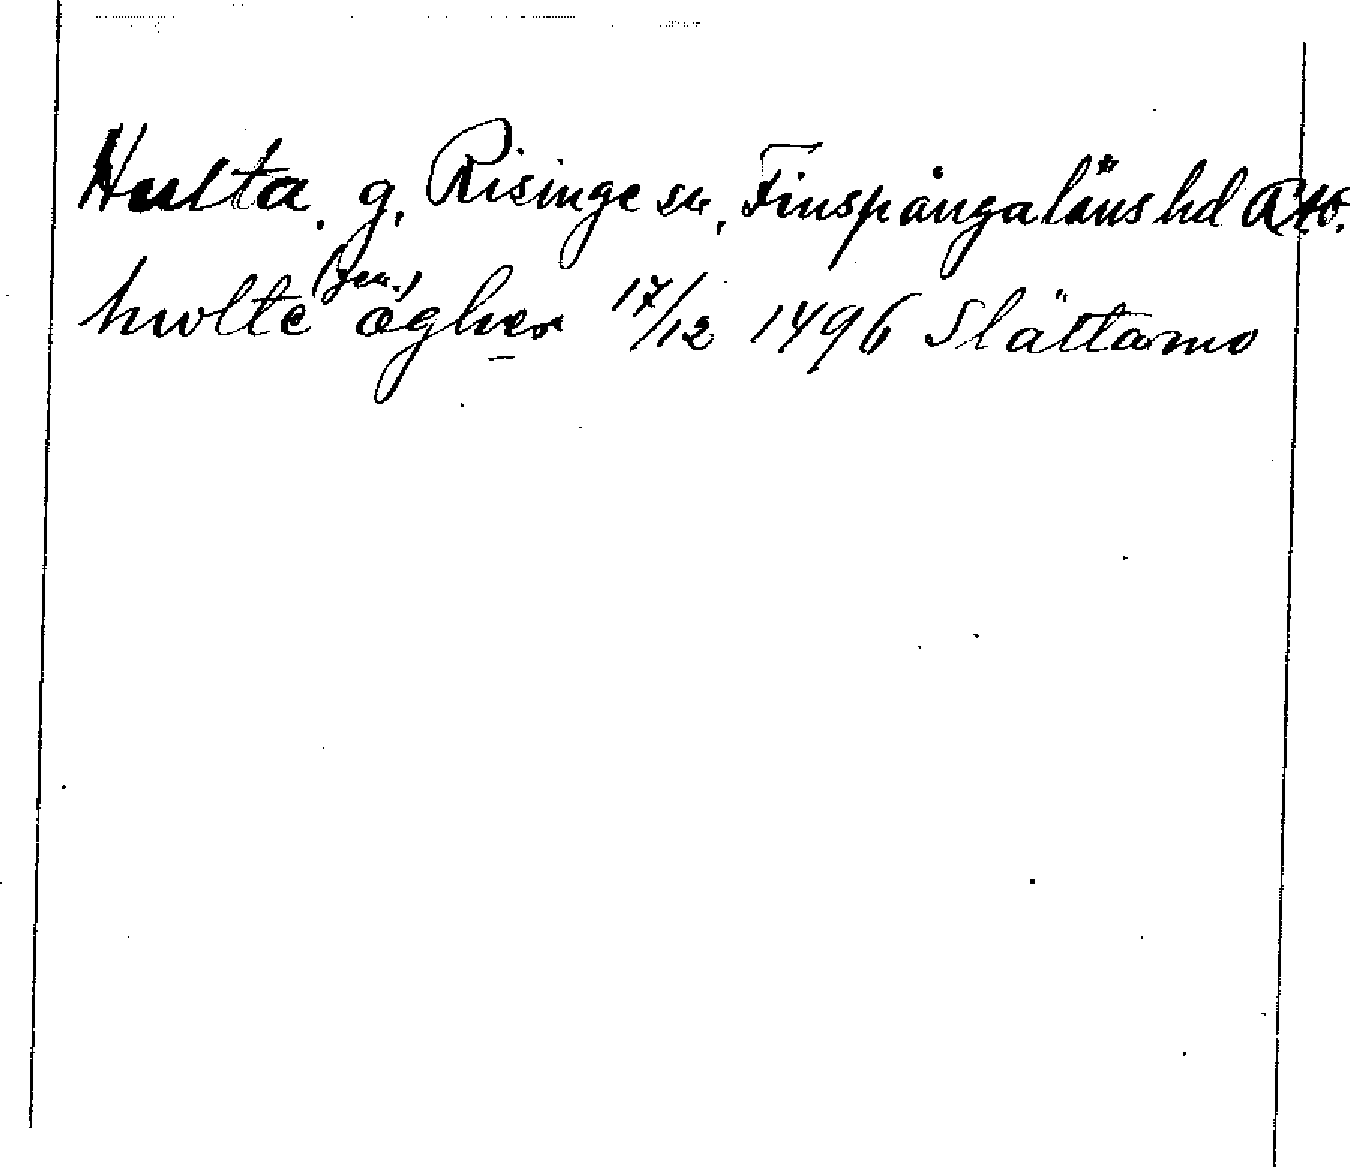 Hulta. g. Risinge sn, Finspångaläns hd Ötl.
hwlte (gen.) ägher 17/12 1496 Slättamo